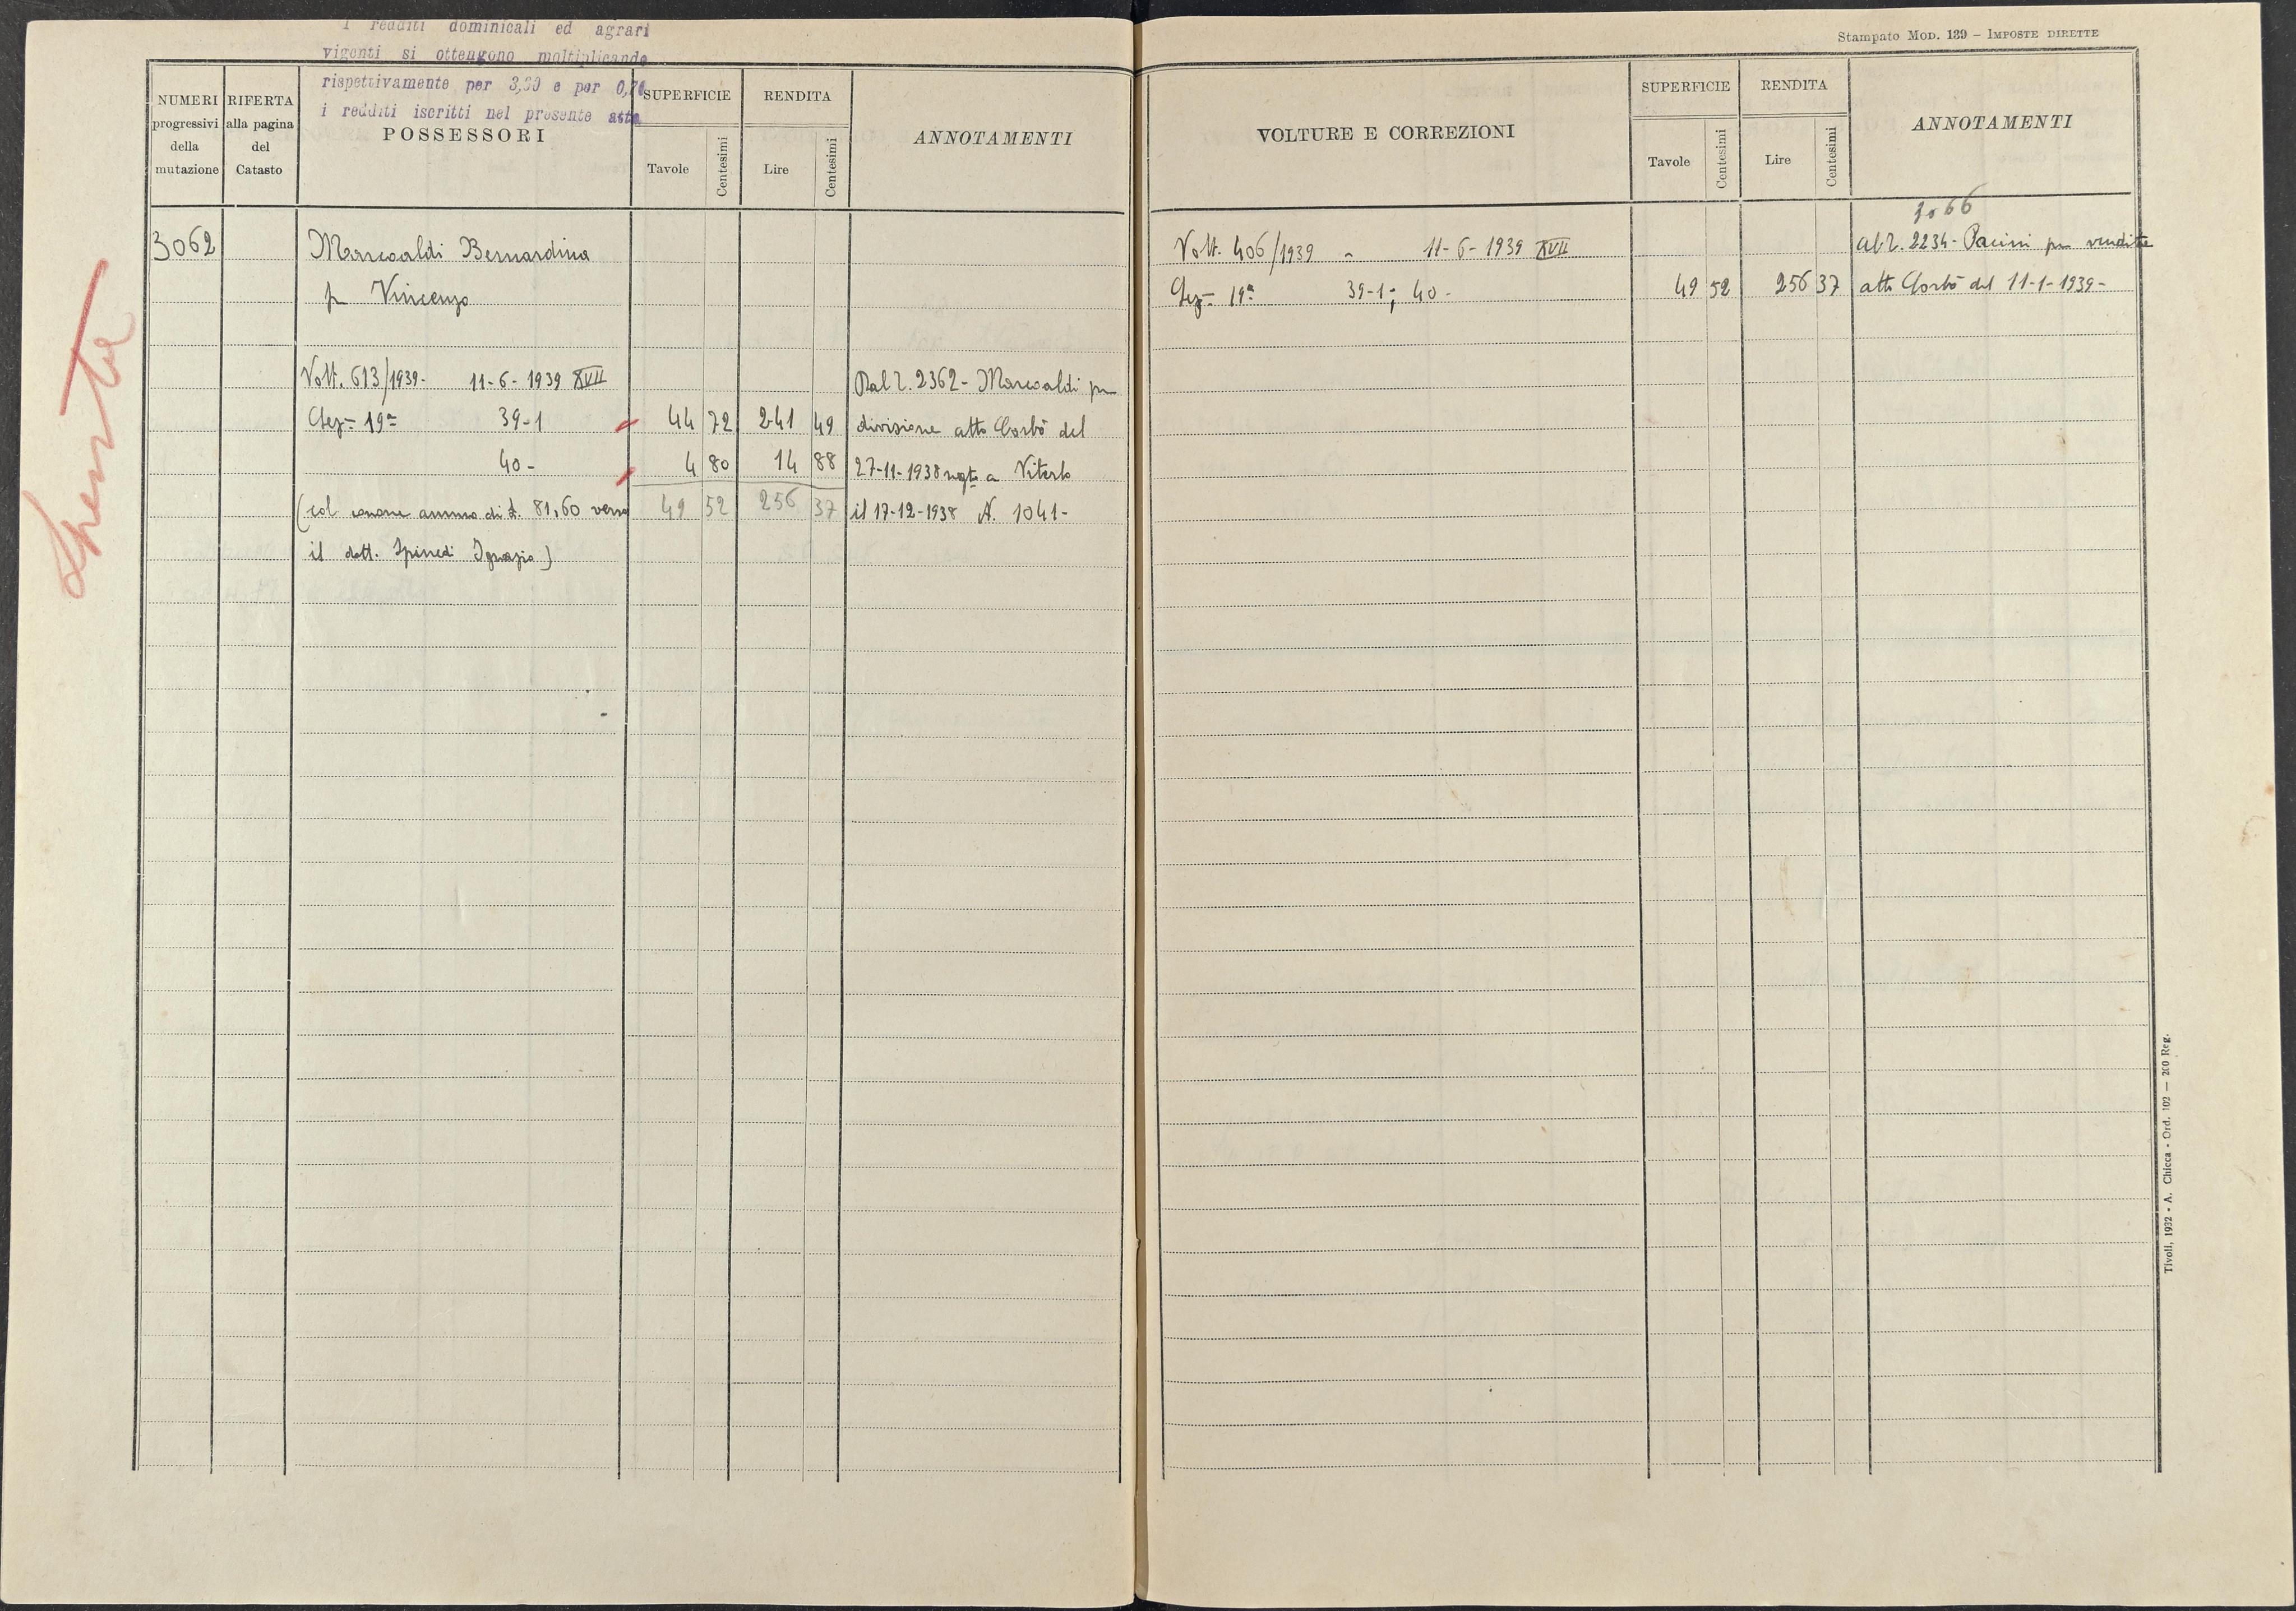 I redditi dominicali ed agrari
vigenti si ottengono moltiplicando
rispettivamente per 3,30 e per 0,70
i redditi iscritti nel presente atto
NUMERI
progressivi
della
mutazione
RIFERTA
alla pagina
del
Catasto
POSSESSORI
SUPERFICIE
Tavole
Centesimi
RENDITA
Lire
Centesimi
ANNOTAMENTI
3062
Marcoaldi Bernardina
fu Vincenzo
Volt. 613/1939 - 11-6-1939 XVII
Sez= 19ª 39-1 44 72 241 49
40- 4 80 14 88
(col canone annuo di L. 81,60 verso 49 52 256 37
il dott. Spinedi Ignazio)
Dal r. 2362 - Marcoaldi per
divisione atto Corbò del
27-11-1938 regto a Viterbo
il 17-12-1938 N. 1041-
Spenta
Stampato Mod. 139 – Imposte dirette
VOLTURE E CORREZIONI
SUPERFICIE
Tavole
Centesimi
RENDITA
Lire
Centesimi
ANNOTAMENTI
3066
Volt. 406/1939 - 11-6-1939 XVII
Sez= 19ª 39-1; 40- 49 52 256 37
al r. 2234 - Pacini per vendita
atto Corbò del 11-1-1939-
Tivoli, 1932 - A. Chicca - Ord. 102 — 200 Reg.